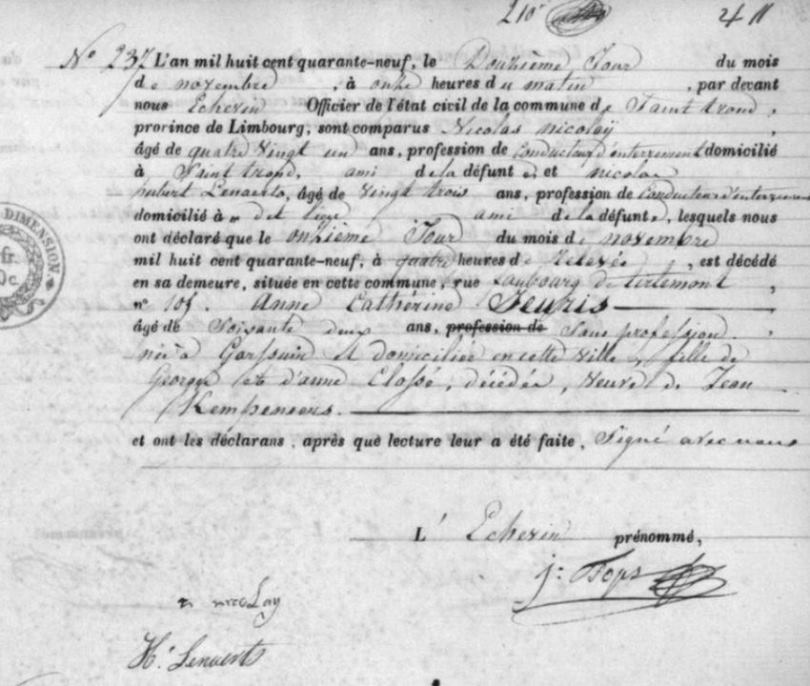 210 411
N° 237 L'an mil huit cent quarante-neuf, le Douzième Jour du mois
de novembre, à onze heures du matin, par devant
nous Echevin Officier de l'état civil de la commune de Saint trond,
prorince de Limbourg, sont comparus Nicolas nicolaÿ,
âgé de quatre Vingt un ans, profession de Conducteur d'enterrement domicilié
à Saint trond, ami de la défunte et nicolas
hubert Lenaerts, âgé de Vingt trois ans, profession de Conducteur d'enterrement
domicilié à dit liege ami de la défunte, lesquels nous
ont déclaré que le onzième Jour du mois de novembre
mil huit cent quarante-neuf, à quatre heures de Relevée, est décédé
en sa demeure, située en cette commune, rue faubourg de tirlemont,
n° 105. Anne Catherine Jeuris
âgé de Soixante deux ans, profession de Sans profession.
née à Gorssum et domiciliée en cette Ville, fille de
George et d'anne Classé, décédés, Veuve de Jean
Kempeneers.
et ont les déclarans, après que lecture leur a été faite, Signé avec nous
L'Echevin prénommé,
j: Tops
n nicoLay
H. Lenaerts
DIMENSION
fr.
c.